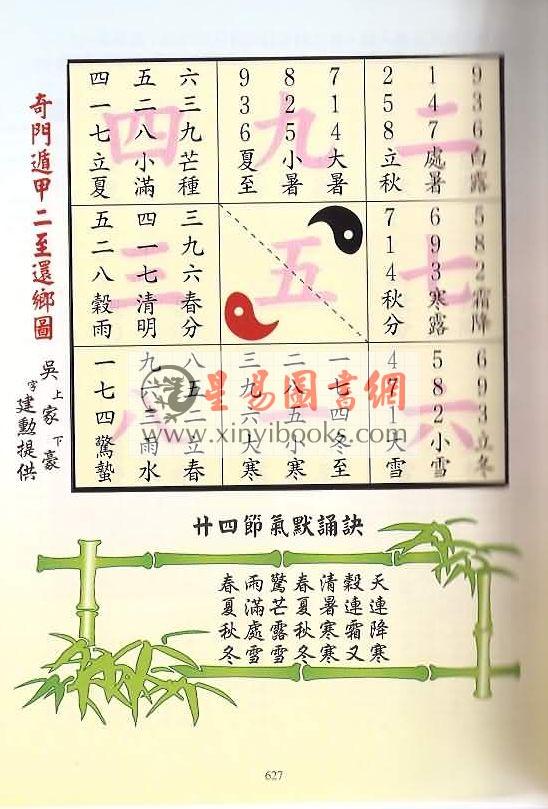 奇門遁甲二至還鄉圖
吳上家下豪
字建勳提供
四
九
二
三
五
七
八
一
六
936白露
147處暑
258立秋
714大暑
825小暑
936夏至
六三九芒種
五二八小滿
四一七立夏
582霜降
693寒露
714秋分
三九六春分
四一七清明
五二八穀雨
693立冬
582小雪
471大雪
一七四冬至
二八五小寒
三九六大寒
八五二立春
九六三雨水
一七四驚蟄
星易圖書網
www.xinyibooks.com
廿四節氣默誦訣
春雨驚春清穀天
夏滿芒夏暑連連
秋處露秋寒霜降
冬雪雪冬寒又寒
627